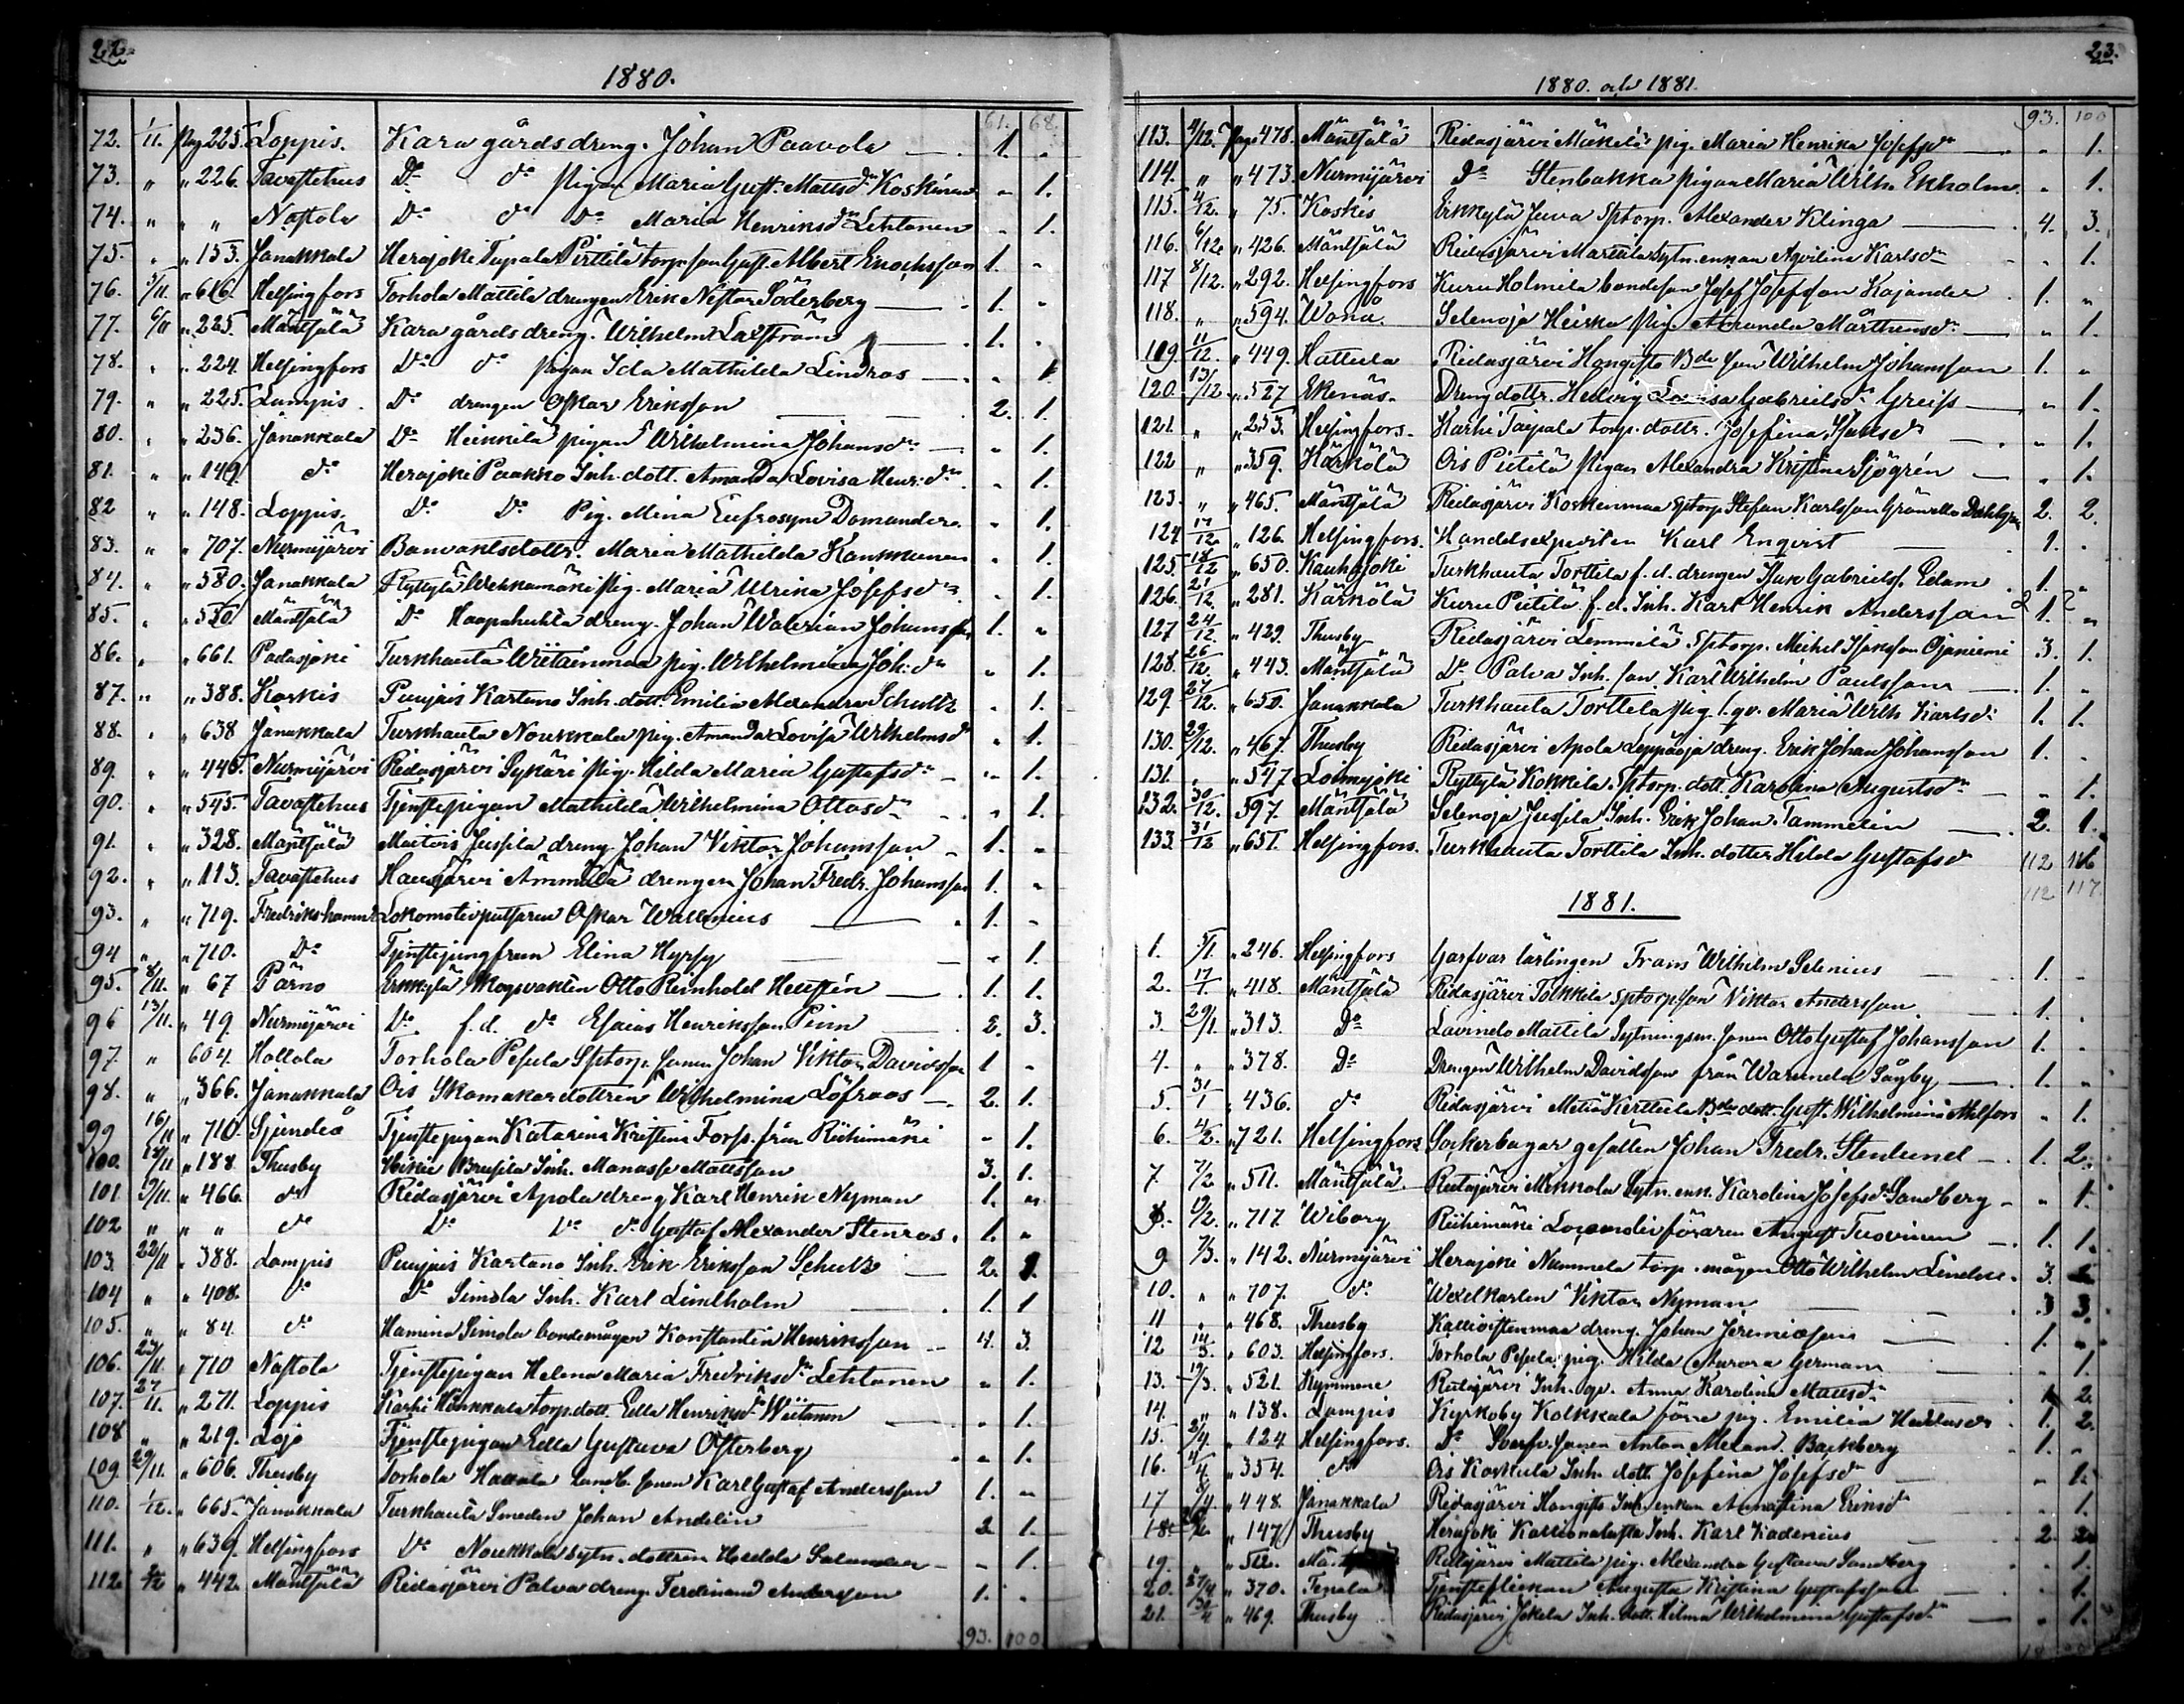 22.
1880.
61. 68.
72. 1/11. pag 225. Loppis. Kara gårds dreng. Johan Paavola — 1. „
73. „ „ 226. Tavastehus Do do pigan Maria Gust. Mattsdr Koskinen „ 1.
74. „ „ „ Nastola Do do Do Maria Henriksdr Lehtonen „ 1.
75. „ „ 153. Janakkala Herajoki Pirttilä torp. son Gust. Albert Enochsson 1. „
76. 3/11. „ 616. Helsingfors Torhola Mattila drengen Erik Nestor Söderberg — 1. „
77. 6/11 „ 225. Mäntsälä Kara gårds dreng. Wilhelm Laxström — 1. „
78. „ „ 224. Helsingfors Do do pigan Ida Mathilda Lindros — „ 1
79. „ „ 225. Lampis. Do drengen Oskar Eriksson — 2. 1.
80. „ „ 236. Janakkala Do Heikkilä pigan Wilhelmina Johansdr — „ 1.
81. „ „ 149. do Herajoki Paakko Inh. dott. Amanda Lovisa Henr:dr „ 1.
82 „ „ 148. Loppis. Do Do Pig. Mina Eufrosyne Domander. „ 1.
83. „ „ 707. Nurmijärvi Banvaktsdottr. Maria Mathilda Kankkunen „ 1.
84. „ „ 580. Janakkala Ryttylä pig. Maria Ulrika Josefsdr „ 1.
85. „ „ 550. Mäntsälä Do Haapahuhta dreng. Johan Walerian Johansson 1. „
86. „ „ 661. Padasjoki Turkhauta Wiitainmaa pig. Wilhelmina Joh:dr „ 1.
87. „ „ 388. Koskis Puujais Kartano Inh. dott. Emilia Alexandra Schultz „ 1.
88. „ „ 638 Janakkala Turkhauta Noukkala pig. Amanda Lovisa Wilhelmsdr „ 1.
89. „ „ 445. Nurmijärvi Ridasjärvi Sykäri pig. Hilda Maria Gustafsdr — „ 1.
90. „ „ 545. Tavastehus Tjenstepigan Mathilda Wilhelmina Ottosdr „ 1.
91. „ „ 328. Mäntsälä Maitois Jussila dreng Johan Viktor Johansson — 1. „
92. „ „ 113. Tavastehus Hausjärvi Ämmälä drengen Johan Fredr. Johansson 1. „
93. „ „ 719. Fredrikshamn Lokomotivputsaren Oskar Wallenius — 1. „
94 „ „ 710. Do Tjenstejungfrun Elina Hyrsy — „ 1.
95. 8/11. „ 67 Pärno Erkkylä skogvakten Otto Reinhold — 1. 1.
96 13/11. „ 49. Nurmijärvi Do f.d. do Esaias Henriksson Piin — 2. 3.
97. „ 604. Hollola Torhola Pesula Sptorp. sonen Johan Viktor Davidsson 1 „
98. „ „ 366. Janakkala Ois Skomakardottren Wilhelmina Löfroos — 2. 1.
99 16/11 „ 710. Sjundeå Tjenstepigan Katarina Kristina Forss. från Riihimäki „ 1.
100. 18/11 „ 188. Thusby Hikie Inh. Manasse Mattsson 3. 1.
101 9/11. „ 466. do Ridasjärvi Apola dreng Karl Henrik Nyman 1. „
102 „ „ „ do Do Do do Gustaf Alexander Stenros. 1. „
103. 22/11 „ 388. Lampis Puujais Kartano Inh. Erik Eriksson Schultz — 2. 1.
104 „ „ 408. do Do Simola Inh. Karl Lindholm — 1. 1
105. „ „ 84. do Hamina Simola bondemågen Konstantin Henriksson — 4. 3.
106. 23/11. „ 710 Nastola Tjenstepigan Helena Maria Fredriksdr Lehtonen „ 1.
107. 27/11. „ 271. Loppis Karhi torp. dott. Edla Henriksdr Wiitanen — „ 1.
108 „ „ 219. Lojo Tjenstepigan Edla Gustava Österberg — „ 1.
109. 29/11. „ 606. Thusby Torhola sonen Karl Gustaf Andersson 1. „
110. 1/12. „ 665. Janakkala Turkhauta Smeden Johan Andelin 2 1.
111. „ „ 639. Helsingfors Do Noukkala Sytn. dottren Hedda Salander — „ 1.
112. 2/12 „ 442. Mäntsälä Ridasjärvi Palva dreng Ferdinand Andersson 1. „
93. 100.
23.
1880. och 1881.
93. 100
113. 4/12. Pag. 478. Mäntsälä Ridasjärvi Mäkelä pig. Maria Henrika Josefsdr — „ 1.
114. „ „ 473. Nurmijärvi Do Stenbakka pigan Maria Wilh. Ekholm. „ 1.
115. 4/12. „ 75. Koskis Erkkylä Juva Sptorp. Alexander Klinga — 4. 3.
116. 6/12. „ 426. Mäntsälä Ridasjärvi Marttila Sytn. enkan Aqvilina Karlsdr „ 1.
117 8/12. „ 292. Helsingfors Kuru Holmila bondeson Josef Josefsson Kajander 1. „
118. „ „ 594. Wånå. Selenoja Heiska pig. Amanda Mårthensdr — „ 1.
119 11/12. „ 449. Hattula Ridasjärvi Hongisto Bde son Wilhelm Johansson 1. „
120. 13/12 „ 527 Ekenäs. Drengdottr. Hedvig Lovisa Gabrielsdr Greiss — „ 1.
121. „ „ 253. Helsingfors. Karhi Taipale torp. dottr. Josefina Isaksdr — „ 1.
122 „ „ 359. Kärkölä Ois Piitilä pigan Alexandra Kristina Sjögrén „ 1.
123. „ „ 465. Mäntsälä Ridasjärvi Koskenmaa Sptorp. Stefan Karlsson 2. 2.
124. 17/12. „ 126. Helsingfors. Handelsexpediten Karl Enqvist 1. „
125. 18/12 „ 650. Kauhajoki Turkhauta Torttila f.d. drengen Isak Gabrielss. Edam 1. „
126. 21/12. „ 281. Kärkölä Kuru Piitilä f.d. Inh. Karl Henrik Andersson 1. „
127 24/12. „ 429. Thusby Ridasjärvi Lemmilä Sptorp. Mickel Isaksson Ojaniemi 3. 1.
128. 26/12. „ 443. Mäntsälä Do Palva Inh. son Karl Wilhelm Paulsson — 1. „
129. 27/12. „ 650. Janakkala Turkhauta Torttila pig. Maria Wilh Karlsdr 1. 1.
130. 29/12. „ 467. Thusby Ridasjärvi Apola Leppäoja dreng. Erik Johan Johansson 1. „
131. „ „ 547. Loimijoki Ryttylä Kokkila Sptorp. dott. Karolina Augustsdr — „ 1.
132. 30/12. „ 597. Mäntsälä Selenoja Jussila Inh. Erik Johan Tammelin — 2. 1.
133. 31/12 „ 651. Helsingfors. Turkhauta Torttila Inh. dotter Hilda Gustafsdr
112 116
112 117.
1881.
1. 5/1. „ 246. Helsingfors Garfvar lärlingen Frans Wilhelm Selenius — 1. „
2. 17/1. „ 418. Mäntsälä Ridasjärvi Tokkila sptorpson Viktor Andersson 1. „
3. 29/1. „ 313. Do Lavinto Mattila Sytningsm. sonen Otto Gustaf Johansson 1. „
4. „ „ 378. Do Drengen Wilhelm Davidsson från — 1. „
5. 31/1 „ 436. do Ridasjärvi Metsä Kerttula Bde dott. Gust. Wilhelmina Ahlfors „ 1.
6. 4/2. „ 721. Helsingfors Sockerbagar gesällen Johan Fredr. Stenlund — 1. 2.
7. 7/2 „ 511. Mäntsälä Ridasjärvi Mikkola Sytn. enk. Karolina Josefsdr Sandberg — „ 1.
8. 9/2. „ 717. Wiborg Riihimäki Locomotivföraren August Tuovinen — 1. 1.
9 7/3. „ 142. Nurmijärvi Herajoki Nummela torp. mågen Otto Wilhelm 3.
10. „ „ 707. do Wexelkarlen Viktor Nyman — 3 3.
11 „ „ 468. Thusby Kallioistenmaa dreng. Johan Jeremiasson — 1. „
12 14/3. „ 603. Helsingfors. Torhola Pesula pig. Hilda Aurora German — „ 1.
13. 19/3. „ 521. Kymmene Ridasjärvi Inh. qv. Anna Karolina Mattsdr 2.
14. „ „ 138. Lampis Kyrkoby Kolkkala förre pig. Emilia 1. 2.
15. 2/4 „ 124 Helsingfors. Do sonen Anton Alexand. Backberg 1. „
16. 4/4 „ 354. do Ois Koskula Inh. dott. Josefina Josefsdr „ 1.
17 8/4 „ 448 Janakkala Ridasjärvi Hongisto Inh. enkan Annastina Eriksdr „ 1.
18. „ 147 Thusby Herajoki Inh. Karl Kadenius 2.
19. „ „ 512. Ridasjärvi Mattila pig. Alexandra Gustava Sandberg „ 1.
20. 27/4 „ 370. Tenala Tjensteflickan Augusta Kristina Gustafsson — „ 1.
21. 30/4 „ 469. Thusby Ridasjärvi Jokela Inh. dott. Hilma Wilhelmina Gustafsdr — „ 1.